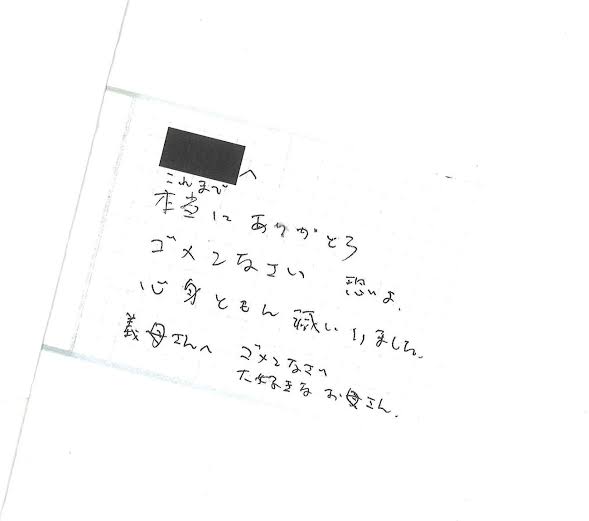 へ
これまで
本当に ありがとう
ゴメンなさい 恐いよ、
心身ともに いりました。
義母さんへ ゴメンなさい
大好きな お母さん。